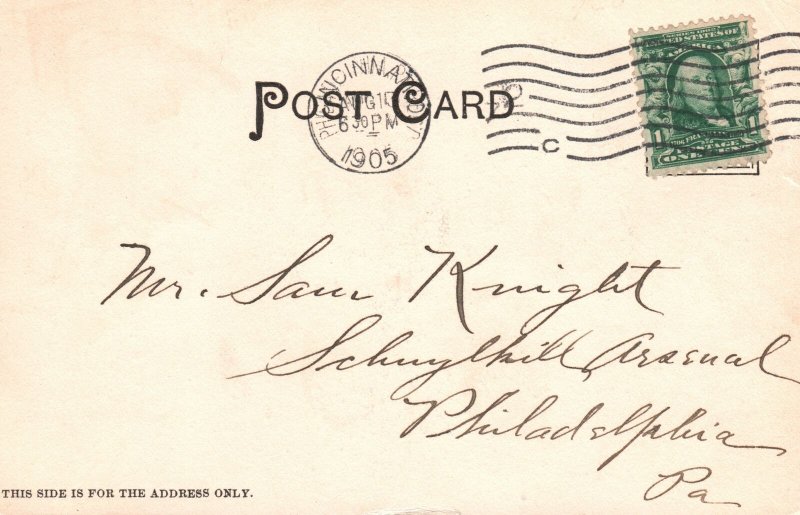 POST CARD
CINCINNATI, O.
AUG 10
6 30 PM
1905
C
SERIES 1902
UNITED STATES OF
AMERICA
1 POSTAGE 1
ONE CENT
Mr. Sam Knight
Schuylkill Arsenal
Philadelphia
Pa
THIS SIDE IS FOR THE ADDRESS ONLY.